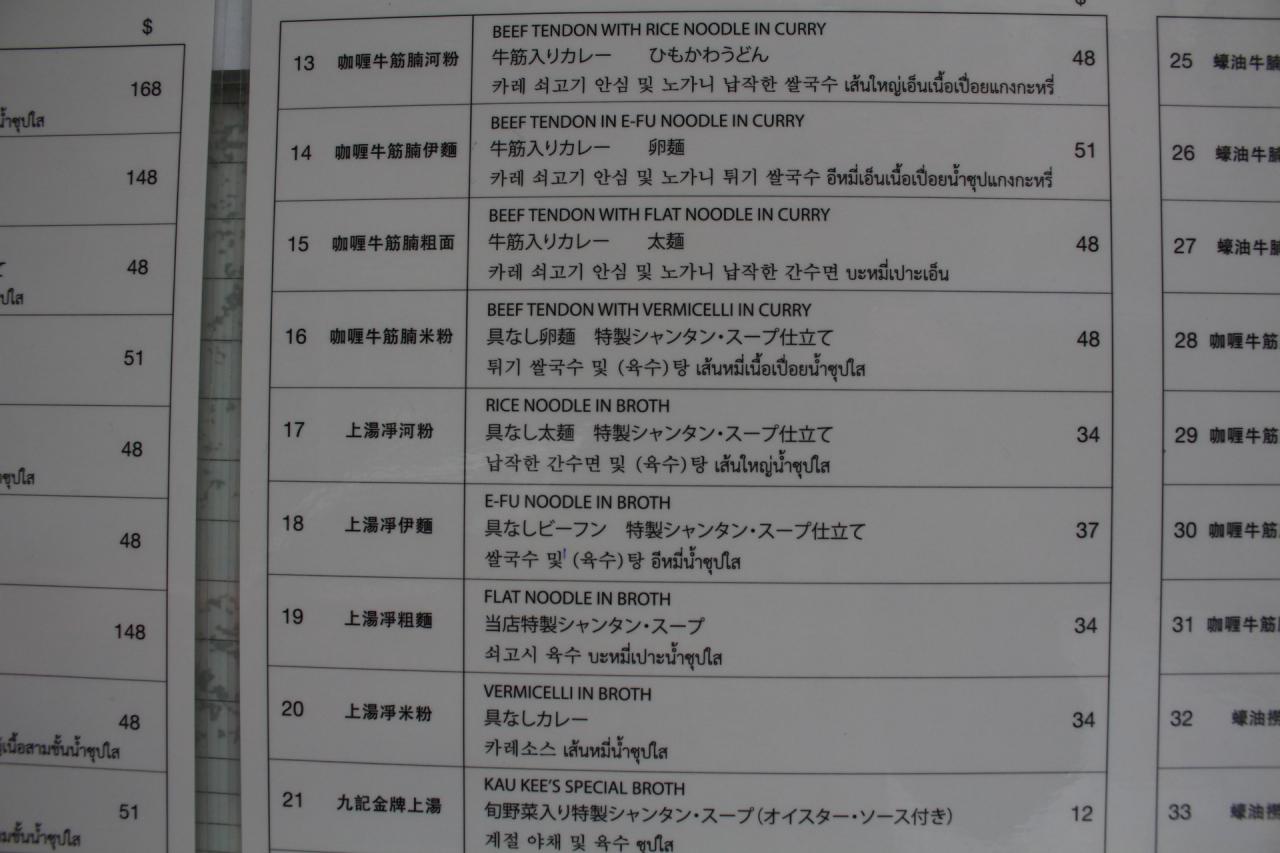 $
168
น้ำซุปใส
148
48
ปใส
51
48
ซุปใส
48
148
48
เนื้อสามชั้นน้ำซุปใส
51
มชั้นน้ำซุปใส
$
BEEF TENDON WITH RICE NOODLE IN CURRY
13 咖喱牛筋腩河粉 牛筋入りカレー ひもかわうどん 48
카레 쇠고기 안심 및 노가니 납작한 쌀국수 เส้นใหญ่เอ็นเนื้อเปื่อยแกงกะหรี่
BEEF TENDON IN E-FU NOODLE IN CURRY
14 咖喱牛筋腩伊麵 牛筋入りカレー 卵麺 51
카레 쇠고기 안심 및 노가니 튀기 쌀국수 อีหมี่เอ็นเนื้อเปื่อยน้ำซุปแกงกะหรี่
BEEF TENDON WITH FLAT NOODLE IN CURRY
15 咖喱牛筋腩粗面 牛筋入りカレー 太麺 48
카레 쇠고기 안심 및 노가니 납작한 간수면 บะหมี่เปาะเอ็น
BEEF TENDON WITH VERMICELLI IN CURRY
16 咖喱牛筋腩米粉 具なし卵麺 特製シャンタン・スープ仕立て 48
튀기 쌀국수 및 (육수)탕 เส้นหมี่เนื้อเปื่อยน้ำซุปใส
RICE NOODLE IN BROTH
17 上湯凈河粉 具なし太麺 特製シャンタン・スープ仕立て 34
납작한 간수면 및 (육수)탕 เส้นใหญ่น้ำซุปใส
E-FU NOODLE IN BROTH
18 上湯凈伊麵 具なしビーフン 特製シャンタン・スープ仕立て 37
쌀국수 및 (육수)탕 อีหมี่น้ำซุปใส
FLAT NOODLE IN BROTH
19 上湯凈粗麵 当店特製シャンタン・スープ 34
쇠고시 육수 บะหมี่เปาะน้ำซุปใส
VERMICELLI IN BROTH
20 上湯凈米粉 具なしカレー 34
카레소스 เส้นหมี่น้ำซุปใส
KAU KEE'S SPECIAL BROTH
21 九記金牌上湯 旬野菜入り特製シャンタン・スープ(オイスター・ソース付き) 12
계절 야채 및 육수 ซุปใส
25 蠔油牛腩
26 蠔油牛腩
27 蠔油牛腩
28 咖喱牛筋
29 咖喱牛筋
30 咖喱牛筋
31 咖喱牛筋
32 蠔油撈
33 蠔油撈